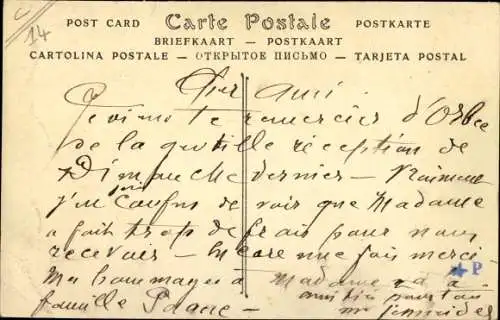 C
14
POST CARD Carte Postale POSTKARTE
BRIEFKAART — POSTKAART
CARTOLINA POSTALE — ОТКРЫТОЕ ПИСЬМО — TARJETA POSTAL
Cher Ami.
Je viens te remercier d'Orbec
de la gentille réception de
Dimanche dernier — Vraiment
j'en suis confus de voir que Madame
a fait trop de frais pour nous
recevoir — Encore une fois merci
Mes hommages à Madame
famille
P